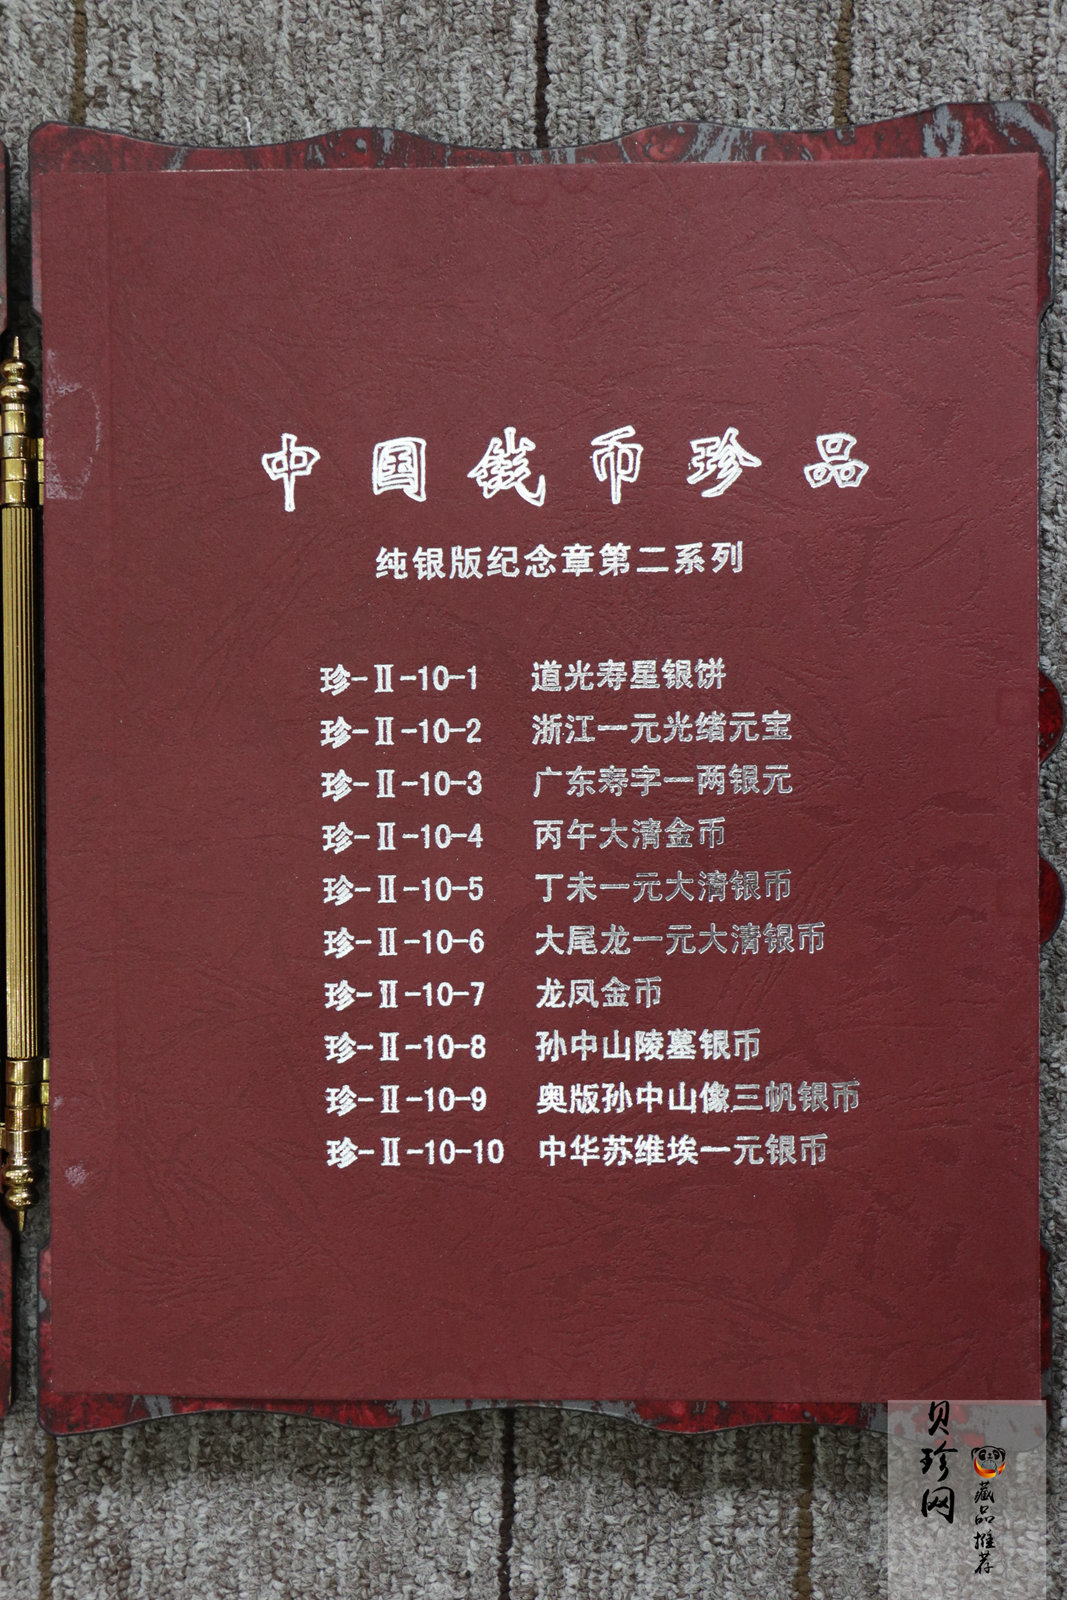 中国钱币珍品
纯银版纪念章第二系列
珍-Ⅱ-10-1 道光寿星银饼
珍-Ⅱ-10-2 浙江一元光绪元宝
珍-Ⅱ-10-3 广东寿字一两银元
珍-Ⅱ-10-4 丙午大清金币
珍-Ⅱ-10-5 丁未一元大清银币
珍-Ⅱ-10-6 大尾龙一元大清银币
珍-Ⅱ-10-7 龙凤金币
珍-Ⅱ-10-8 孙中山陵墓银币
珍-Ⅱ-10-9 奥版孙中山像三帆银币
珍-Ⅱ-10-10 中华苏维埃一元银币
贝珍网
藏品推荐